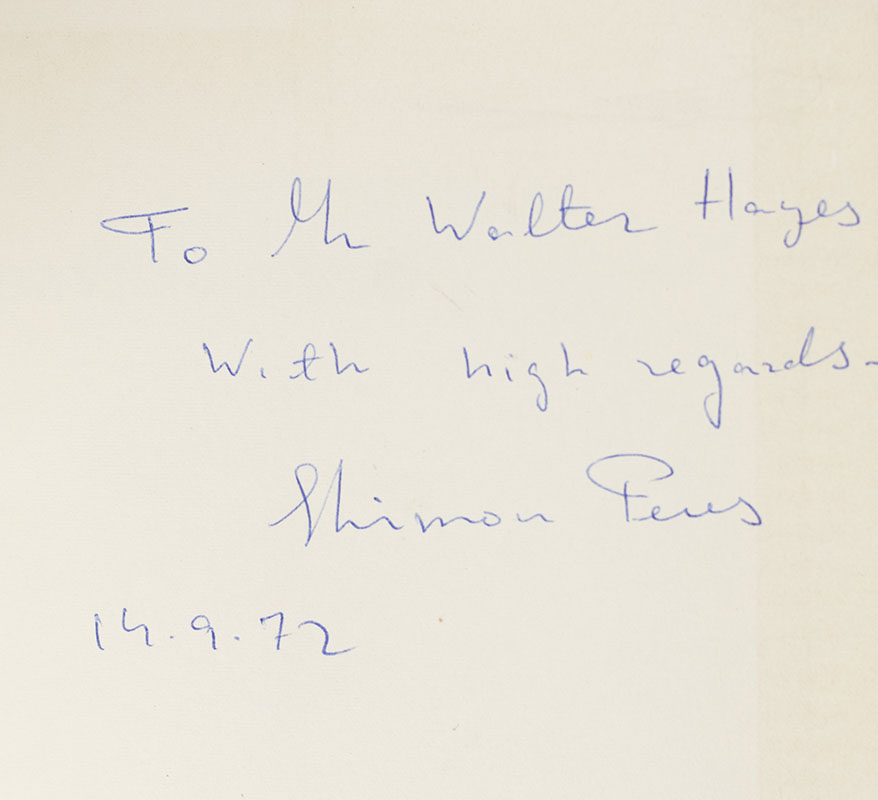 To Mr Walter Hayes
With high regards-
Shimon Peres
14.9.72